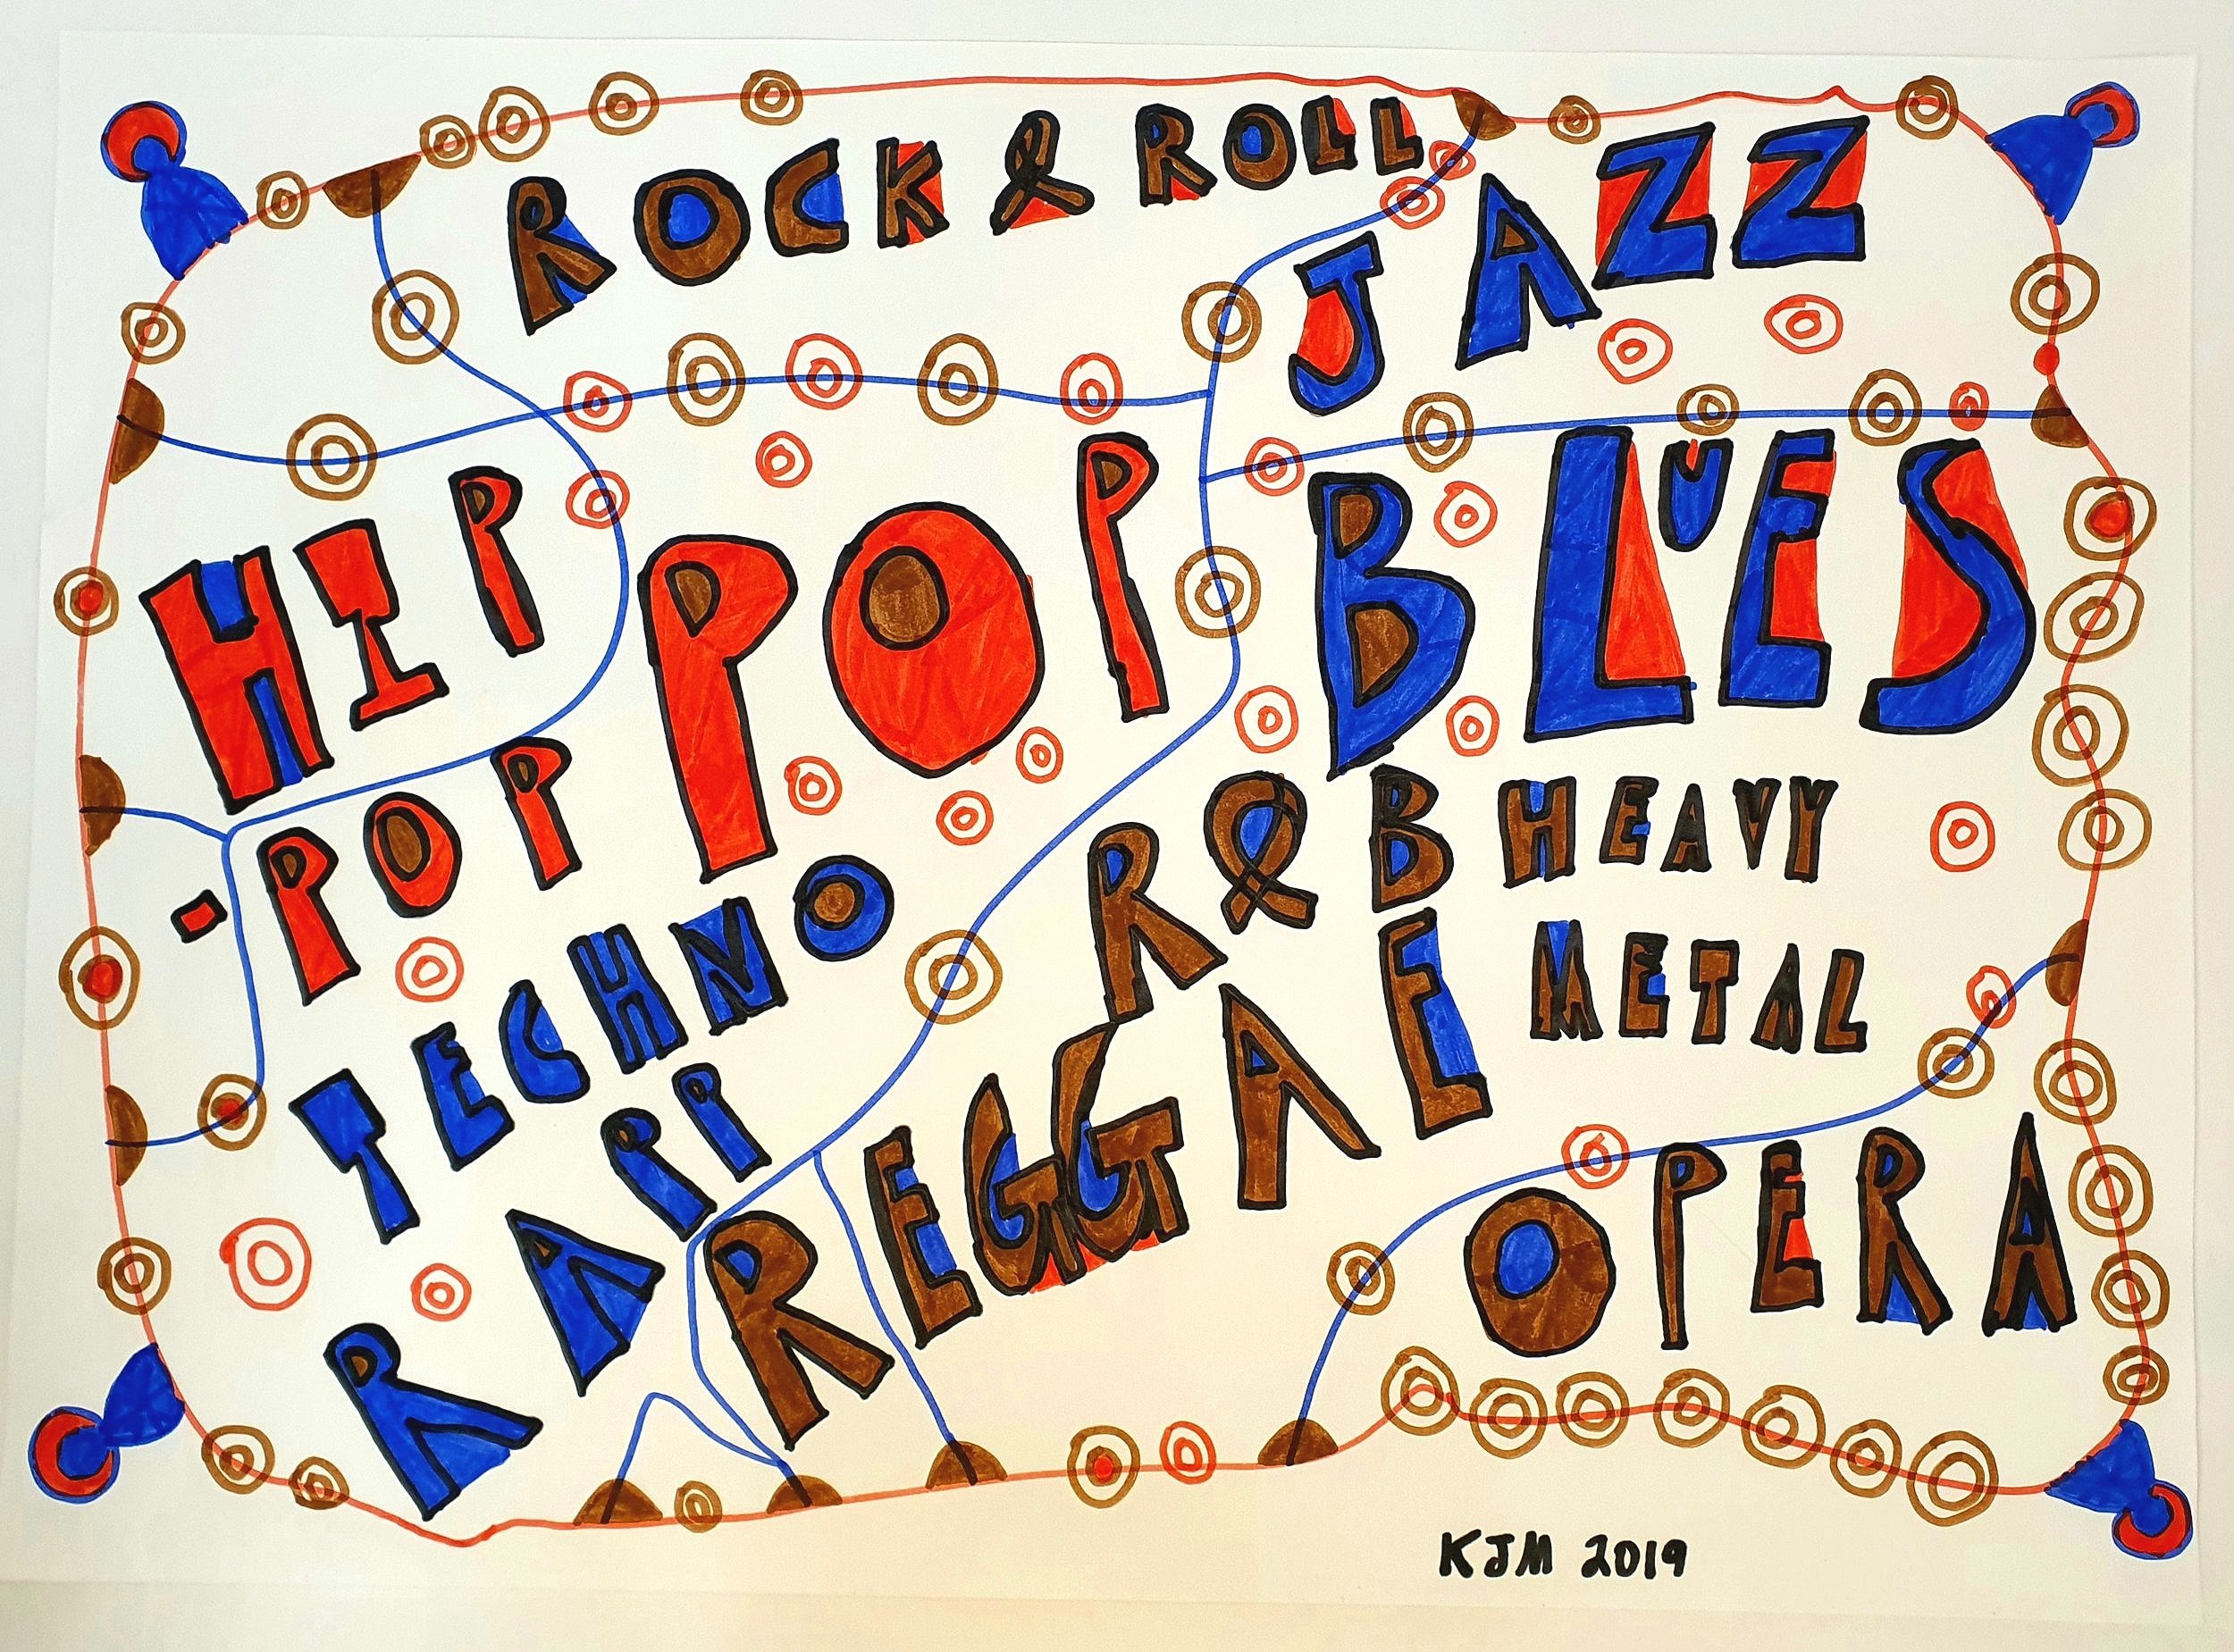 ROCK & ROLL
JAZZ
HIP
-POP
POP
BLUES
R&B
HEAVY
METAL
TECHNO
RAPP
REGGAE
OPERA
KJM 2019